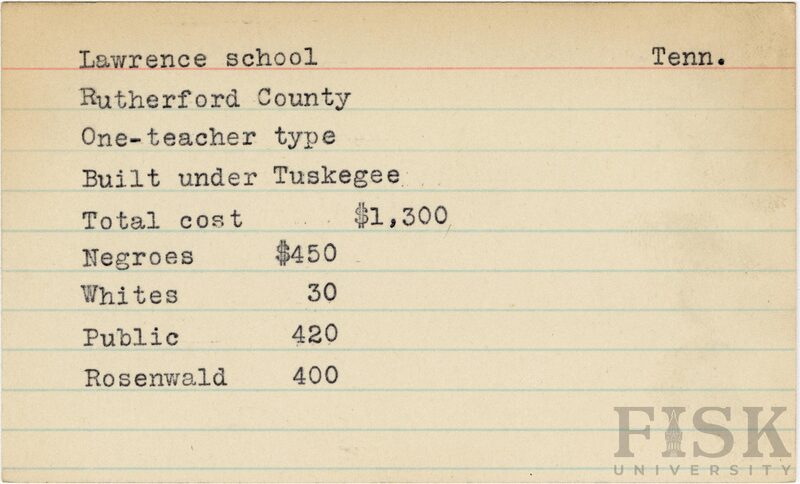 Lawrence school Tenn.
Rutherford County
One-teacher type
Built under Tuskegee
Total cost $1,300
Negroes $450
Whites 30
Public 420
Rosenwald 400
FISK
UNIVERSITY